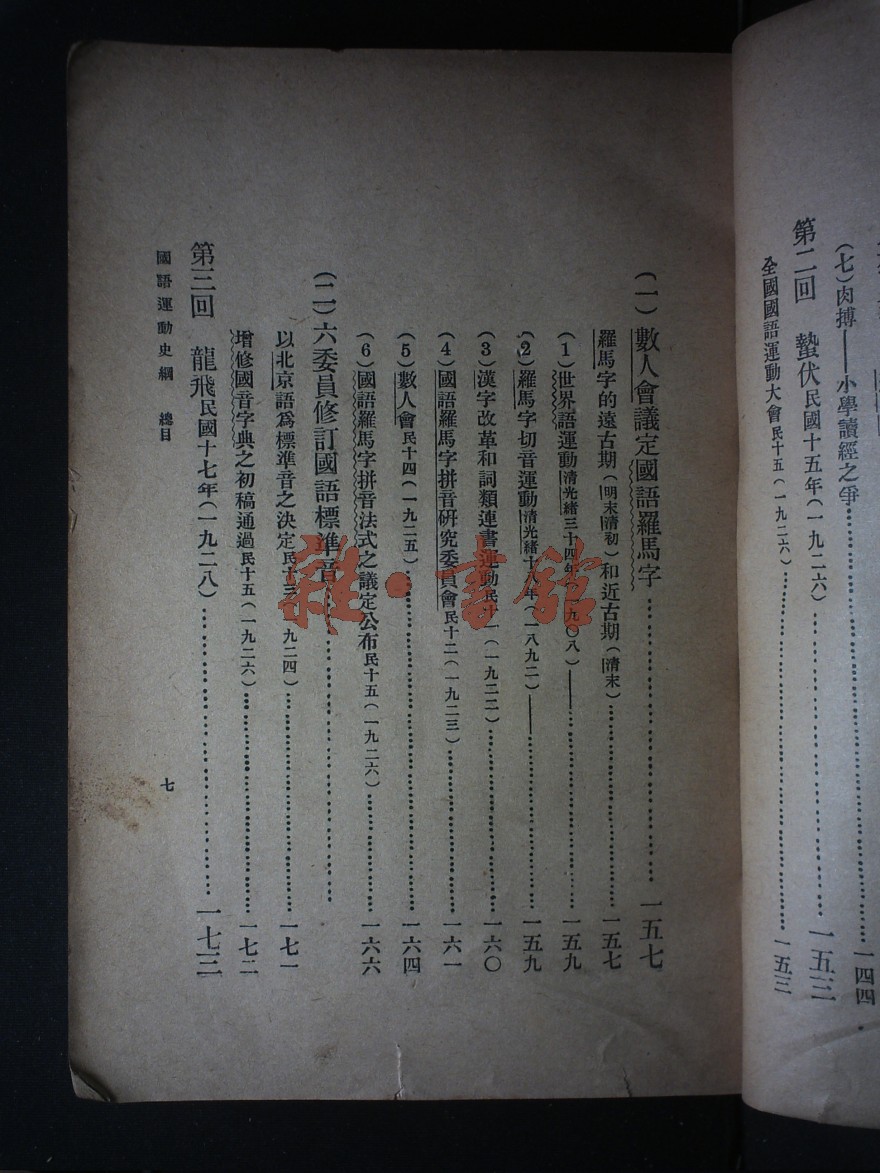 (七)肉搏——小學讀經之爭……一四四
第二回 蟄伏民國十五年(一九二六)……一五三
全國國語運動大會民十五(一九二六)……一五三
(一)數人會議定國語羅馬字……一五七
羅馬字的遠古期(明末清初)和近古期(清末)……一五七
(1)世界語運動清光緒三十四年(一九〇八)——……一五九
(2)羅馬字切音運動清光緒十八年(一八九二)——……一五九
(3)漢字改革和詞類連書運動民十一(一九二二)……一六〇
(4)國語羅馬字拼音研究委員會民十二(一九二三)……一六一
(5)數人會民十四(一九二五)……一六四
(6)國語羅馬字拼音法式之議定公布民十五(一九二六)……一六六
(二)六委員修訂國語標準音……
以北京語爲標準音之決定民十三(一九二四)……一七一
增修國音字典之初稿通過民十五(一九二六)……一七二
第三回 龍飛民國十七年(一九二八)……一七三
國語運動史綱 總目
七
雜·書館